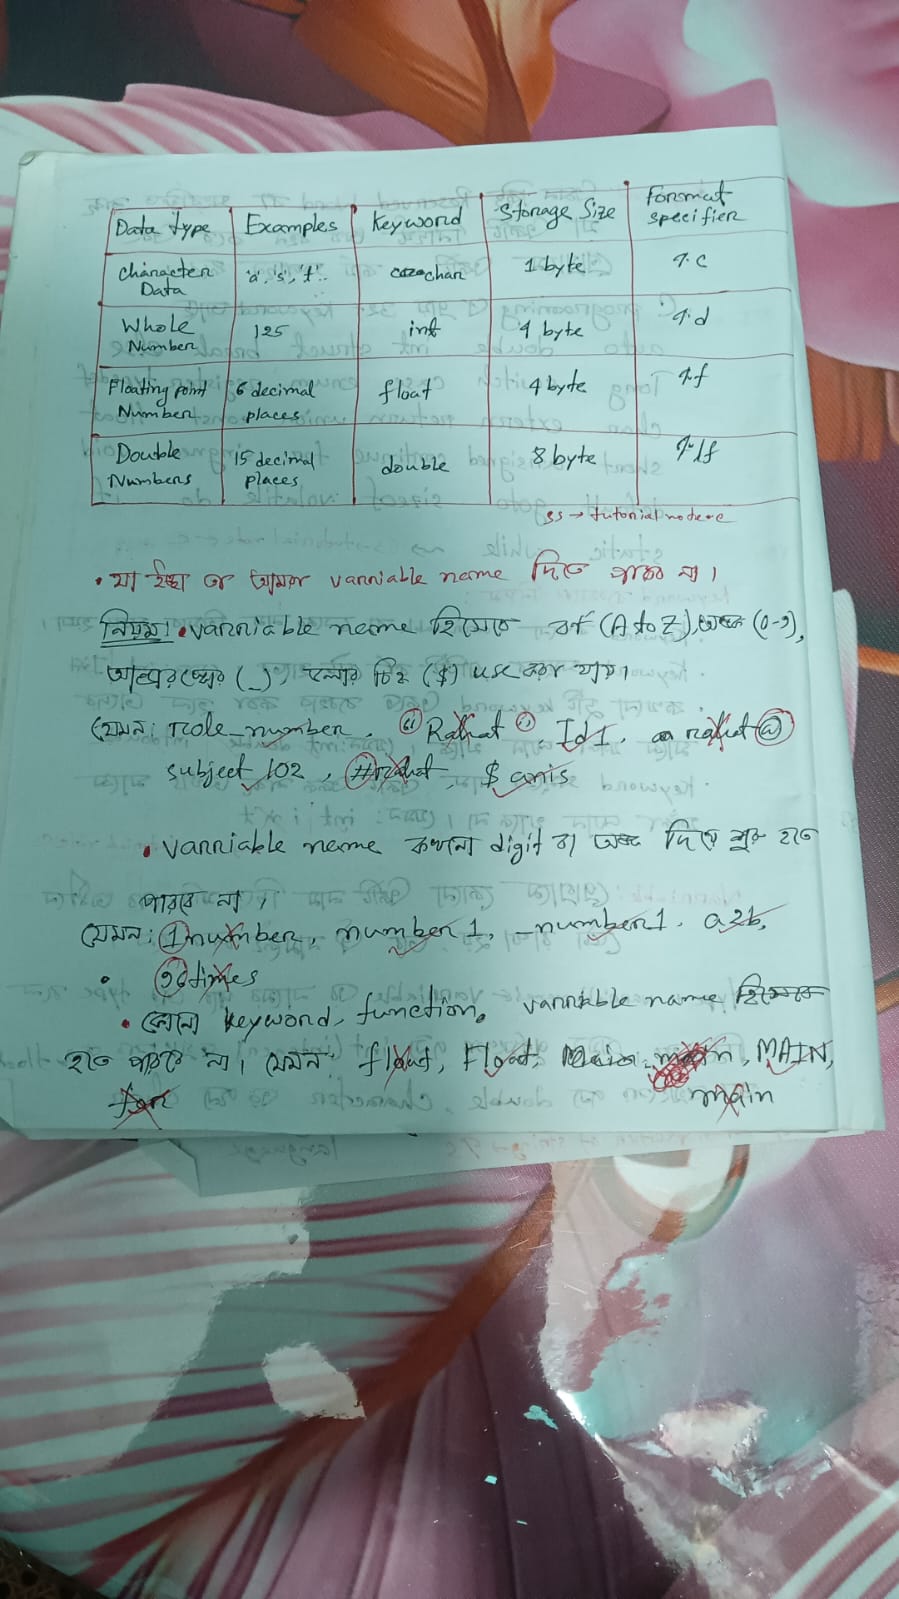 Data type | Examples | Keyword | Storage Size | Format specifier
Character Data | 'a', 's', 't'. | char | 1 byte | %c
Whole Number | 125 | int | 4 byte | %d
Floating point Number | 6 decimal places | float | 4 byte | %f
Double Numbers | 15 decimal places | double | 8 byte | %lf
ss → tutorial
• যা ইচ্ছা তা আমরা varriable name দিতে পারব না।
নিয়ম: • varriable name হিসেবে বর্ণ (A to Z), অঙ্ক (0-9),
আন্ডারস্কোর (_), ডলার চিহ্ন ($) use করা যায়।
যেমন: role_number, " Rahat ", Id1, rahat@
subject 102, #rahat, $ anis
• varriable name কখনো digit বা অঙ্ক দিয়ে শুরু হতে
পারবে না।
যেমন: 1number, number1, _number1, a2b,
• times
• কোনো keyword, function, varriable name হিসেবে
হতে পারবে না। যেমন: float, Float, main, MAIN,
for main